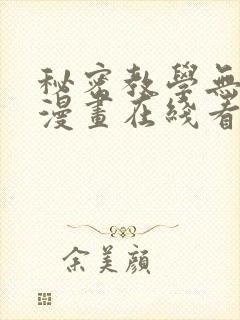 秘密教學無
漫畫在綫看
余美顔